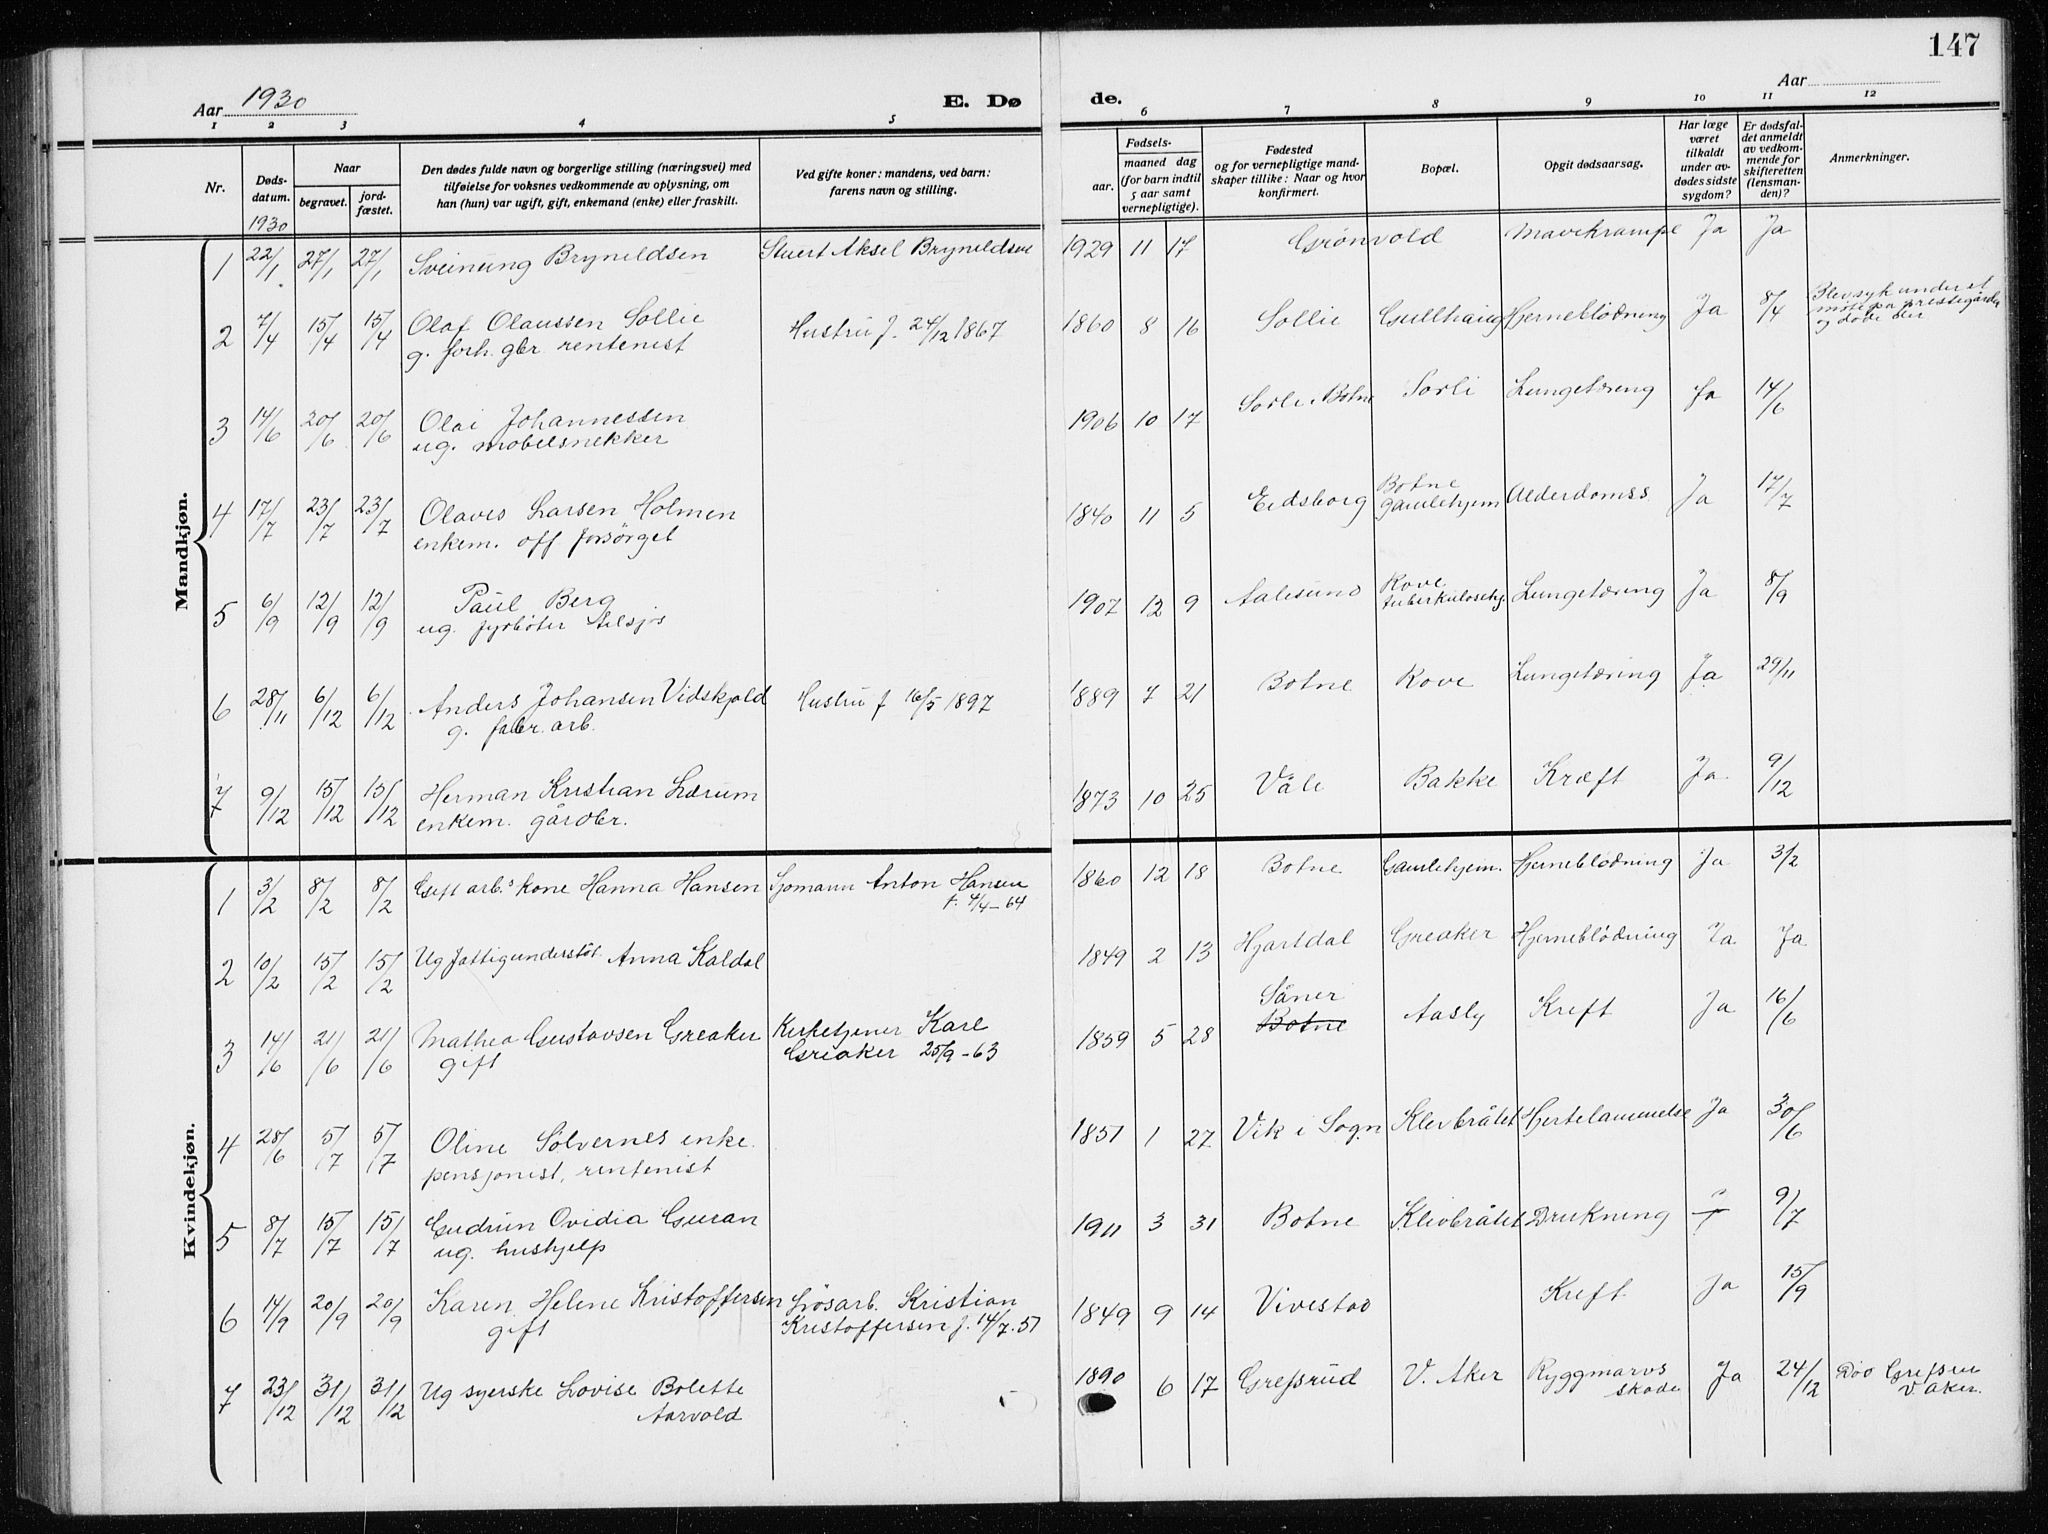 147
Aar 1930
E. Dø de.
Aar
1 2 3 4 5 6 7 8 9 10 11 12
Nr.
Døds-
datum.
Naar
begravet.
jord-
fæstet.
Den dødes fulde navn og borgerlige stilling (næringsvei) med
tilføielse for voksnes vedkommende av oplysning, om
han (hun) var ugift, gift, enkemand (enke) eller fraskilt.
Ved gifte koner: mandens, ved barn:
farens navn og stilling.
Fødsels-
aar.
maaned dag
(for barn indtil
5 aar samt
vernepligtige).
Fødested
og for vernepligtige mand-
skaper tillike: Naar og hvor
konfirmert.
Bopæl.
Opgit dødsaarsag.
Har læge
været
tilkaldt
under av-
dødes sidste
sygdom?
Er dødsfal-
det anmeldt
av vedkom-
mende for
skifteretten
(lensman-
den)?
Anmerkninger.
1930
Mandkjøn.
1 22/1 27/1 27/1 Sveinung Bryneldsen Stuert Aksel Bryneldsen 1929 11 17 Grönvold Mavekrampe Ja Ja
2 7/4 15/4 15/4 Olaf Olaussen Sollie Hustru f. 24/12 1867 1860 8 16 Sollie Gullhaug Hjerneblödning Ja 8/4 Blev syk under et
g. forh. gbr rentenist møte på prestegården
og døde der
3 14/6 20/6 20/6 Olai Johannessen 1906 10 17 Sorli Botne Sorli Lungetæring Ja 14/6
ug. mobelsnekker
4 17/7 23/7 23/7 Olaves Larsen Holmen 1840 11 5 Eidsborg Botne gamlehjem Alderdomss. Ja 17/7
enkem. off forsörget
5 6/9 12/9 12/9 Paul Berg 1907 12 9 Aalesund Rove tuberkulosehj. Lungetæring Ja 8/9
ug. fyrböter
6 28/11 6/12 6/12 Anders Johansen Vidskjold Hustru f 16/5 1897 1889 7 21 Botne Rove Lungetæring Ja 29/11
g. fabr. arb.
7 9/12 15/12 15/12 Herman Kristian Lærum 1873 10 25 Våle Bakke Kræft Ja 9/12
enkem. gårdbr.
Kvindekjøn.
1 3/2 8/2 8/2 Gift arb.s kone Hanna Hansen Sjomann Anton Hansen 1860 12 18 Botne Gamlehjem. Hjerneblödning Ja 3/2
f. 4/4-64
2 10/2 15/2 15/2 Ug fattigunderstöt. Anna Kaldal 1849 2 13 Hjartdal Greaker Hjerneblödning Ja Ja
3 14/6 21/6 21/6 Mathea Gustavsen Greaker Kirketjener Karl 1859 5 28 Såner Botne Aasly Kreft Ja 16/6
gift Greaker 25/9-63
4 28/6 5/7 5/7 Oline Sölvernes enke 1851 1 27 Vik i Sogn Klevbråtet Hjertelammelse Ja 30/6
pensjonist, rentenist
5 8/7 15/7 15/7 Gudrun Ovidia Guran 1911 3 31 Botne Klevbråtet Drukning ? 9/7
ug. hushjelp
6 14/9 20/9 20/9 Karen Helene Kristoffersen Lösarb. Kristian 1849 9 14 Vivestad Kreft Ja 15/9
gift Kristoffersen f. 14/7.51
7 23/12 31/12 31/12 Ug syerske Lovise Bolette 1890 6 17 Grefsrud V. Aker Ryggmarvs Ja 24/12 Död Grefsrud
Aarvold skade V Aker.